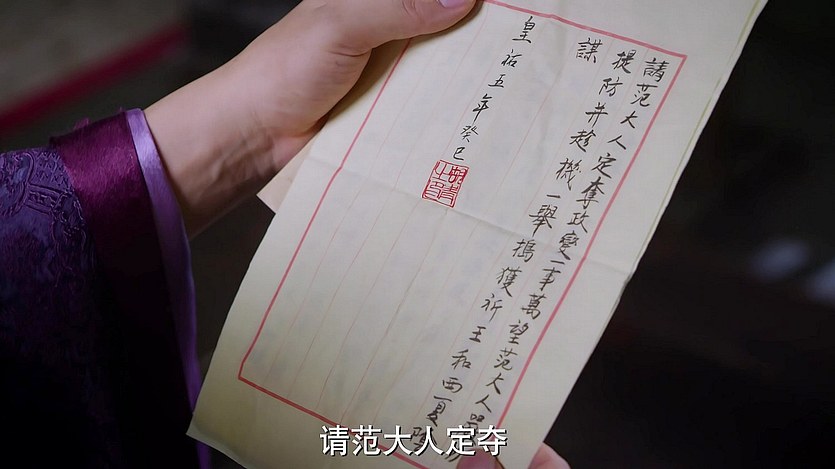 請范大人定奪政變一事萬望范大人
提防并趁機一舉搗獲祈王和西夏
謀
皇祐五年癸巳
请范大人定夺